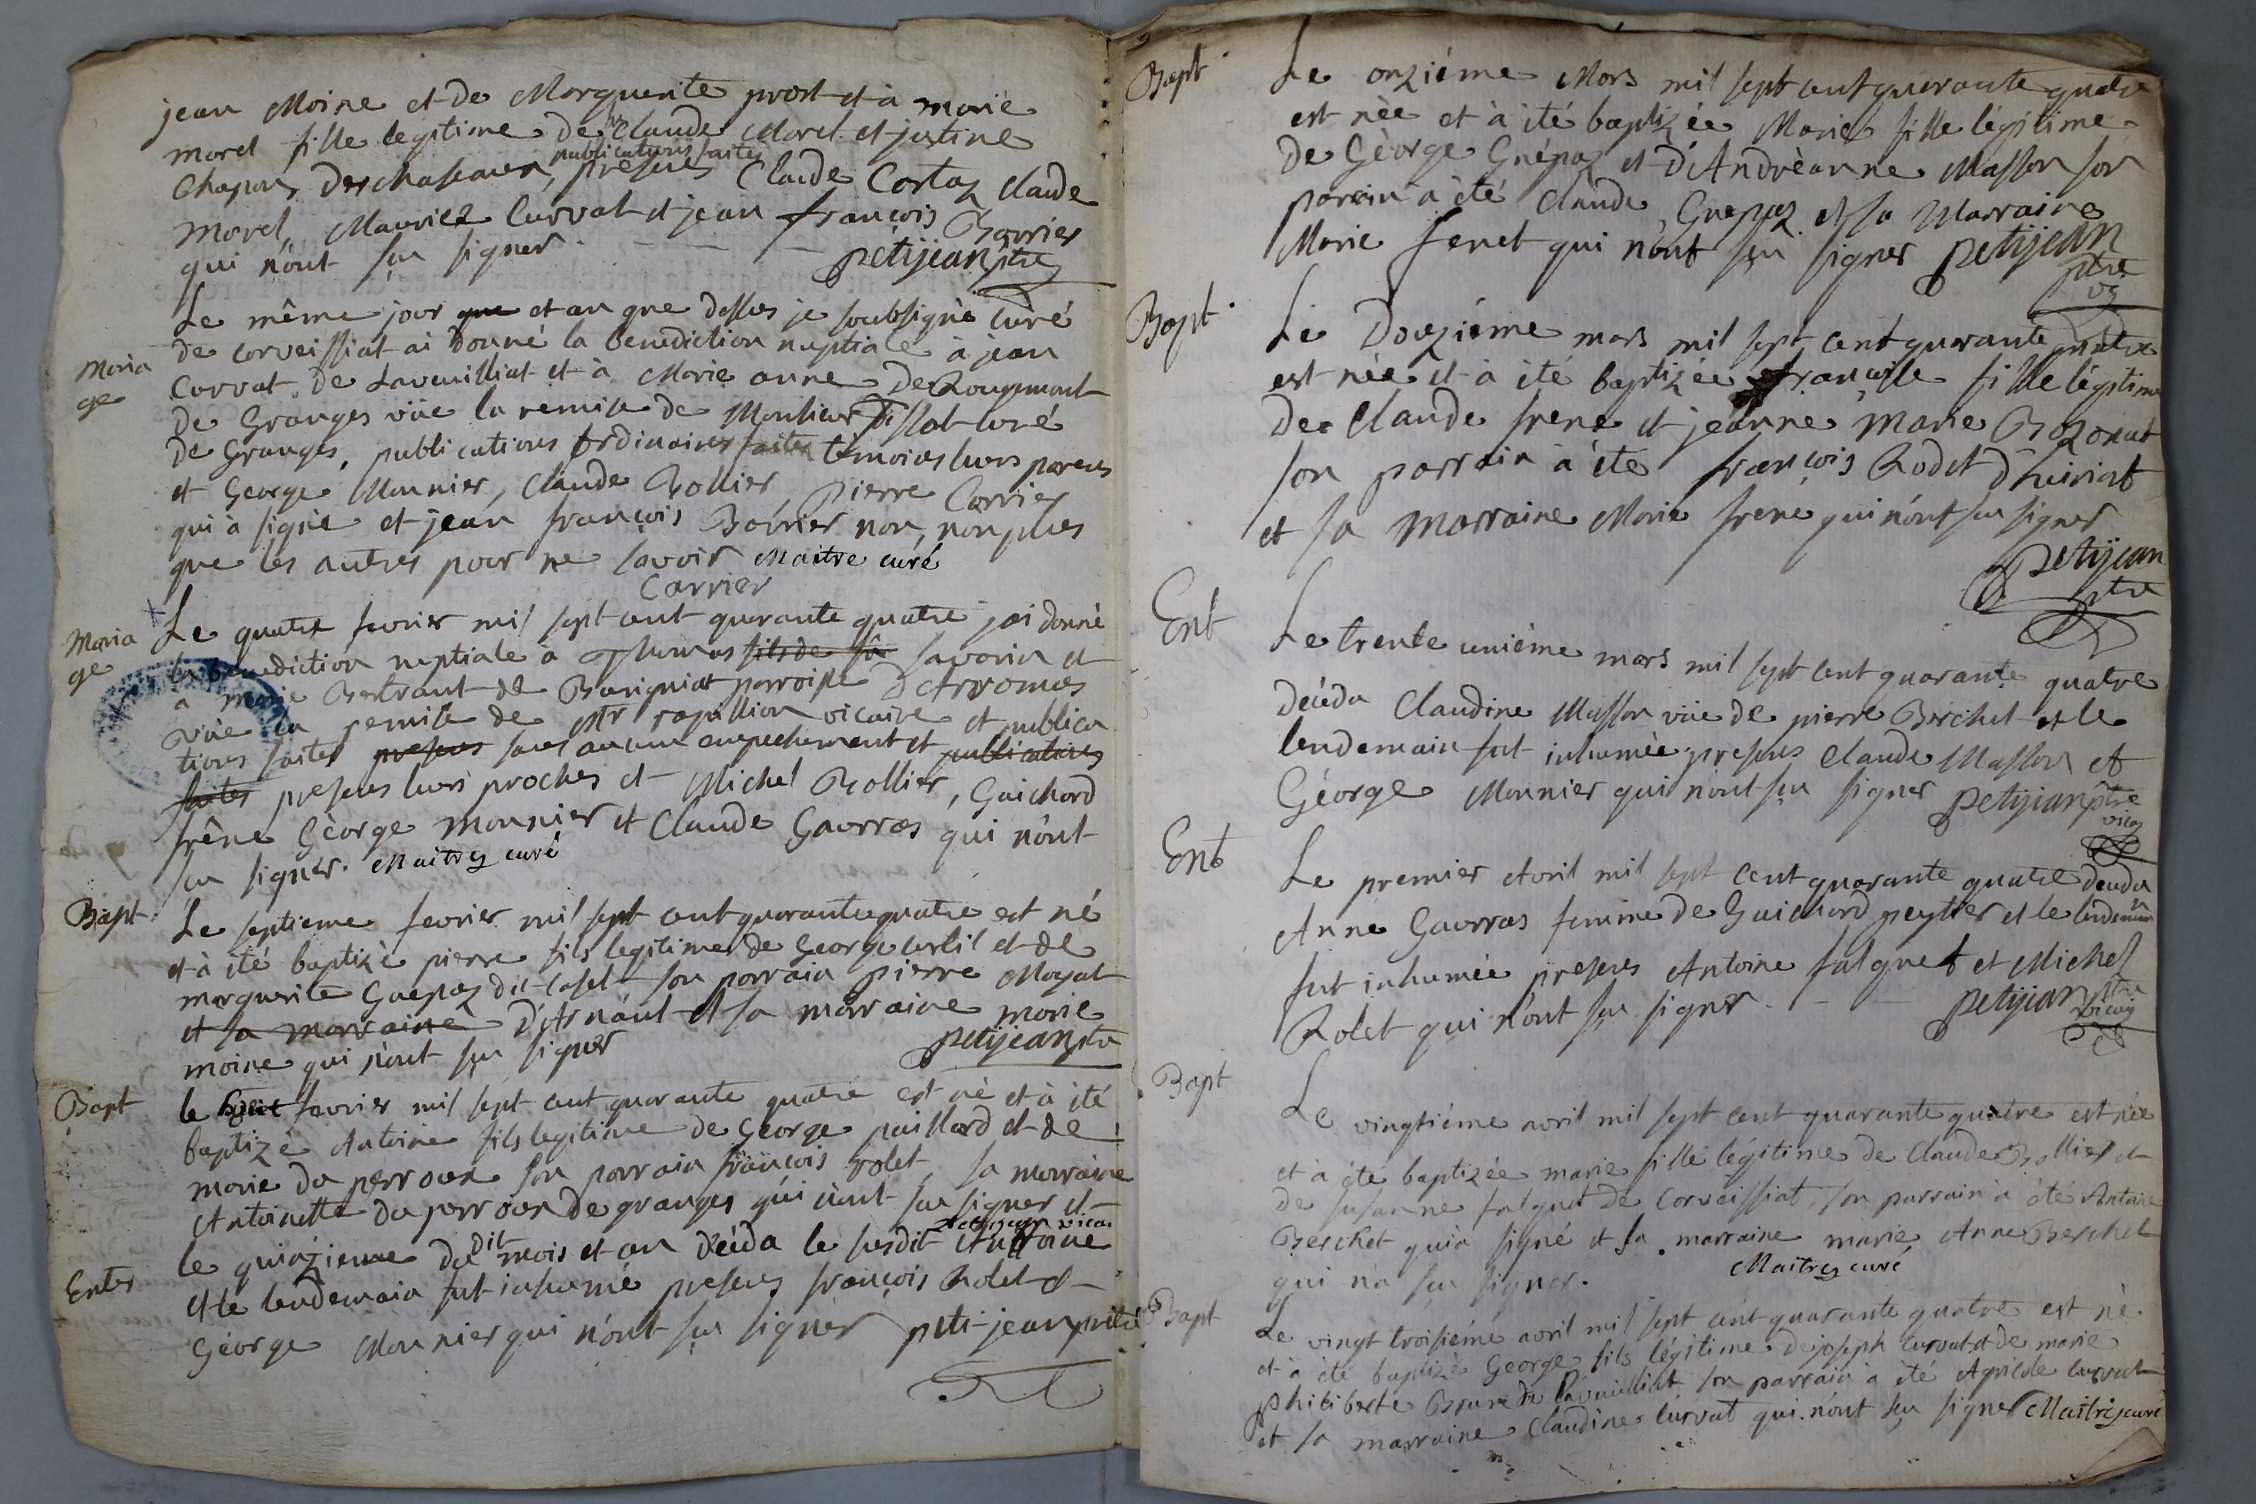 jean Moine et de Marguerite prost et à marie
morel fille legitime de Claude Morel et justine
Chapon publications faites
presens Claude Cortaz Claude
morel, Mauriez Curvat et jean françois Bovrier
qui n'ont sçu signer. petijean ptre
Le même jour que et an que dessus je soubsigné curé
de corveissiat ai donné la benediction nuptiale à jean
Maria
ge
Corvat de Lavenilliat et à Marie anne De Rougemont
de Granges vüe la remise de Monsieur curé
de Granges, publications ordinaires faites temoins leurs parens
et George Monnier, Claude Rollier, pierre Carrier
qui à signé et jean françois Bovrier non, non plus
que les autres pour ne savoir Maitre curé
Carrier
Maria
ge
Le quatre fevrier mil sept cent quarante quatre jai donné
la benediction nuptiale à Thomas fils de fû Savarin et
à marie Bertrant de Bavigniat parroisse D'Arromas
vüe la remise de Mtr vicaire et publica
tions faites presens sans aucun empechement et publications
faites presens leurs proches et Michel Rollier, Guichard
frêne George monnier et Claude Gavrras qui n'ont
sçu signer. Maitrez curé
Bapt
Le septieme fevrier mil sept cent quarante quatre est né
et à été baptizé pierre fils legitime de George curtil et de
marguerite Guepaz dit Caset son parrain pierre Moyat
et sa marraine D'Arnaut et sa marraine marie
moine qui n'ont sçu signer petijean ptre
Bapt
le huit favrier mil sept cent quarante quatre est né et à été
baptizé Antoine fils legitime de George paillard et de
marie du perroux son parrain françois rolet, sa marraine
Antoinette du perroux de granges qui n'ont sçu signer et
petijean vicai
le quinzieme du dit mois et an déceda le susdit Antoine
Enter
et le lendemain fut inhumé presens françois Rolet et
George Monnier qui n'ont sçu signer petijean
Bapt
Le onziéme Mars mil sept cent quarante quatre
est née et à été baptizée Marie fille légitime
de Gèorge Guépaz et d'Andrèanne Masson son
parrain à été Claude Guepaz et sa Marraine
Marie fenet qui n'ont sçu signer petijean
ptre
vg
Bapt
Le Douziéme mars mil sept cent quarante quatre
est née et à été baptizée françoise fille légitime
de Claude frene et jeanne Marie Bozonat
son parrain à été françois Rodet d'huiriat
et sa marraine Marie frene qui n'ont sçu signer
petijean
ptre
Ent
Le trente uniéme mars mil sept cent quarante quatre
déceda Claudine Masson vüe de pierre Berchet et le
lendemain fut inhumée presens Claude Masson et
Géorge Monnier qui n'ont sçu signer petijean ptre
vicaz
Ent
Le premier Avril mil sept cent quarante quatre deceda
Anne Gavrras femme de Guichard peytier et le lendemain
fut inhumée presens Antoine falquet et Michel
Rolet qui n'ont sçu signer. petijean ptre
vicaiz
Bapt
Le vingtiéme avril mil sept cent quarante quatre est née
et à été baptizée marie fille légitime de Claude Rollier et
de susanne falquet de Corveissiat, son parrain à été Antoine
Berchet qui à signé et sa marraine marie Anne Berchet
qui n'a sçu signer. Maitrez curé
Bapt
Le vingt troisiéme avril mil sept cent quarante quatre est né
et à été baptizé George fils légitime de joseph Curvat et de marie
philiberte Brune de Lavenilliat son parrain à été Agricole curvat
et sa marraine Claudine Curvat qui n'ont sçu signer Maitrez curé